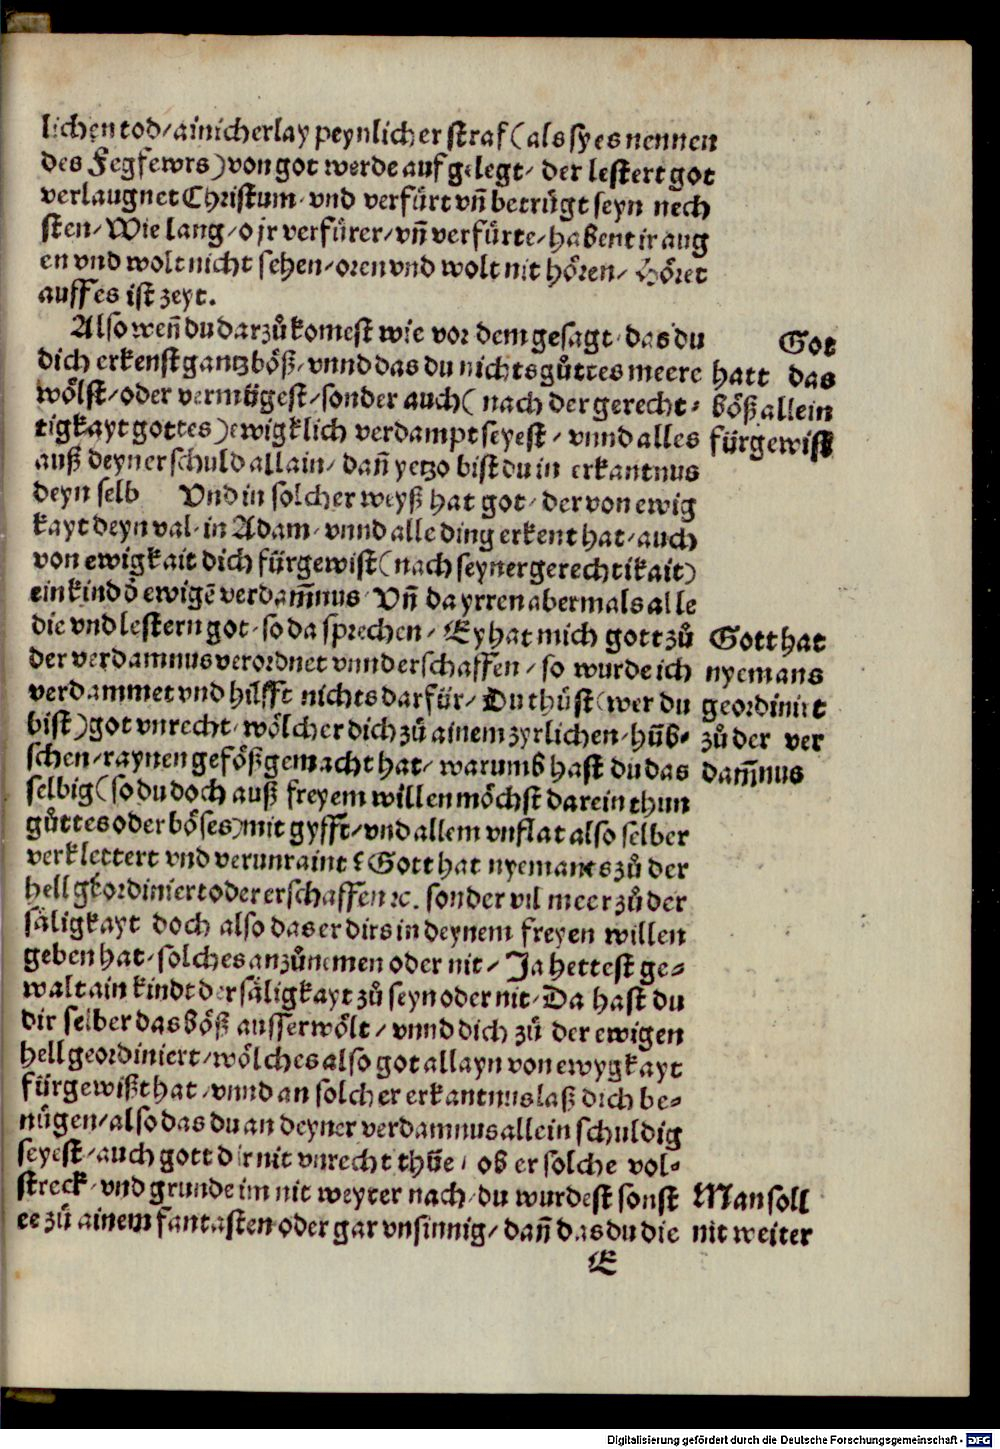 lichen tod/ainicherlay peynlicher straf(als sy es nennen
des Fegfewrs)von got werde auf gelegt/ der lestert got
verlaugnet Christum/ vnd verfürt vñ betrügt seyn nech
sten/ Wie lang/o jr verfürer/vñ verfürte/habent ir aug
en vnd wolt nicht sehen/oren vnd wolt nit hören/ Höret
auff es ist zeyt.
Also weñ du darzů komest wie vor dem gesagt/ das du
dich erkenst gantz böß/ vnnd das du nichts gůttes meere
wölst/oder vermügest/sonder auch( nach der gerecht⸗
tigkayt gottes)ewigklich verdampt seyest/ vnnd alles
auß deyner schuld allain/ dañ yetzo bist du in erkantnus
deyn selb Vnd in solcher weyß hat got/ der von ewig
kayt deyn val/ in Adam/ vnnd alle ding erkent hat/auch
von ewigkait dich fürgewist(nach seyner gerechtikait)
ein kind ð ewigē verdam̄nus/ Vñ da yrren abermals alle
die vnd lestern got/ so da sprechen/ Ey hat mich gott zů
der verdamnus verordnet vnnd erschaffen/ so wurde ich
verdammet vnd hilfft nichts darfür/ Du thůst(wer du
bist)got vnrecht/ wölcher dich zů ainem zyrlichen/hüb⸗
schen/raynen gefößgemacht hat/ warumb hast du das
selbig(so du doch auß freyem willen möchst darein thun
gůttes oder böses)mit gyfft/vnd allem vnflat also selber
verklettert vnd verunraint? Gott hat nyemants zů der
hell geordiniert oder erschaffen ⁊c. sonder vil meer zů der
säligkayt doch also das er dirs in deynem freyen willen
geben hat/solches anzůnemen oder nit/ Ja hettest ge⸗
walt ain kindt der säligkayt zů seyn oder nit/ Da hast du
dir selber das böß ausserwölt/ vnnd dich zů der ewigen
hell geordiniert/wölches also got allayn von ewygkayt
fürgewißt hat/vnnd an solcher erkantnus laß dich be⸗
nügen/also das du an deyner verdamnus allein schuldig
seyest/auch gott dir nit vnrecht thüe/ ob er solche vol⸗
streck/vnd grunde im nit weyter nach/du wurdest sonst
ee zů ainem fantasten oder gar vnsinnig/ dañ das du die
E
Got
hatt das
böß allein
fürgewist
Gott hat
nyemans
geordiniert
zů der ver
dam̄nus
Man soll
nit weiter
Digitalisierung gefördert durch die Deutsche Forschungsgemeinschaft - DFG